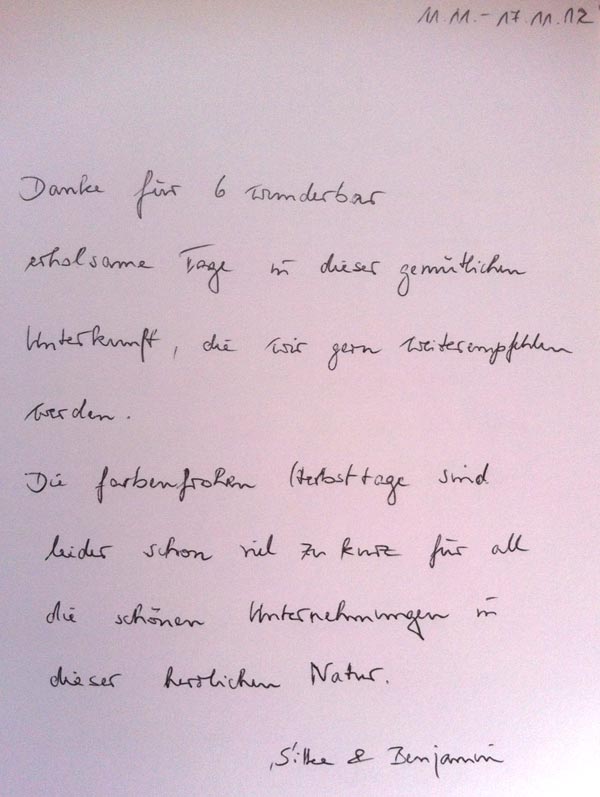 11.11. - 17.11.12
Danke für 6 wunderbar
erholsame Tage in dieser gemütlichen
Unterkunft, die wir gern weiterempfehlen
werden.
Die farbenfrohen Herbsttage sind
leider schon viel zu kurz für all
die schönen Unternehmungen in
dieser herrlichen Natur.
Silke & Benjamin